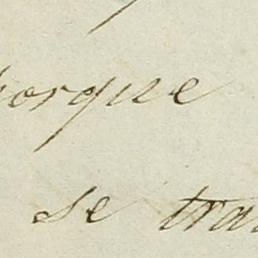 porque
se tra